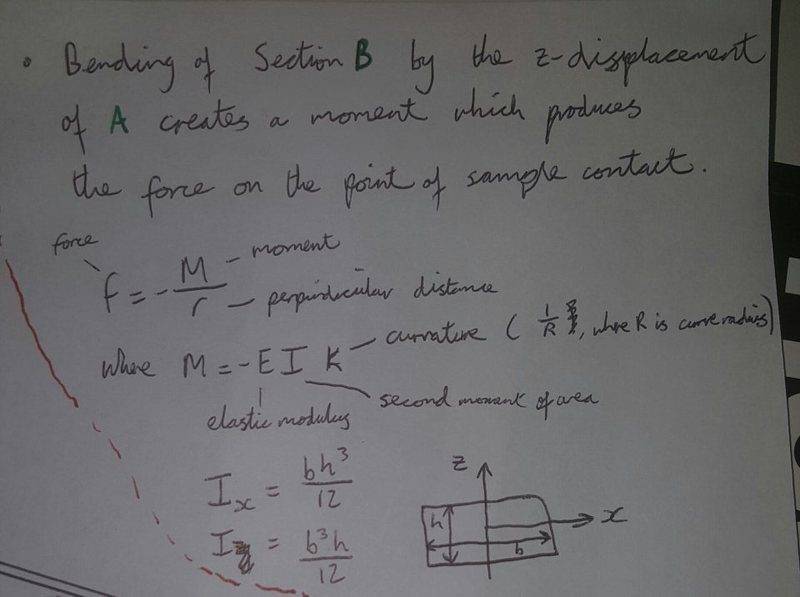 • Bending of Section B by the z-displacement
of A creates a moment which produces
the force on the point of sample contact.
force
f = - M/r
moment
perpindicular distance
where M = -E I K
curvature ( 1/R , where R is curve radius)
elastic modulus
second moment of area
Ix = bh³/12
I = b³h/12
z
x
h
b